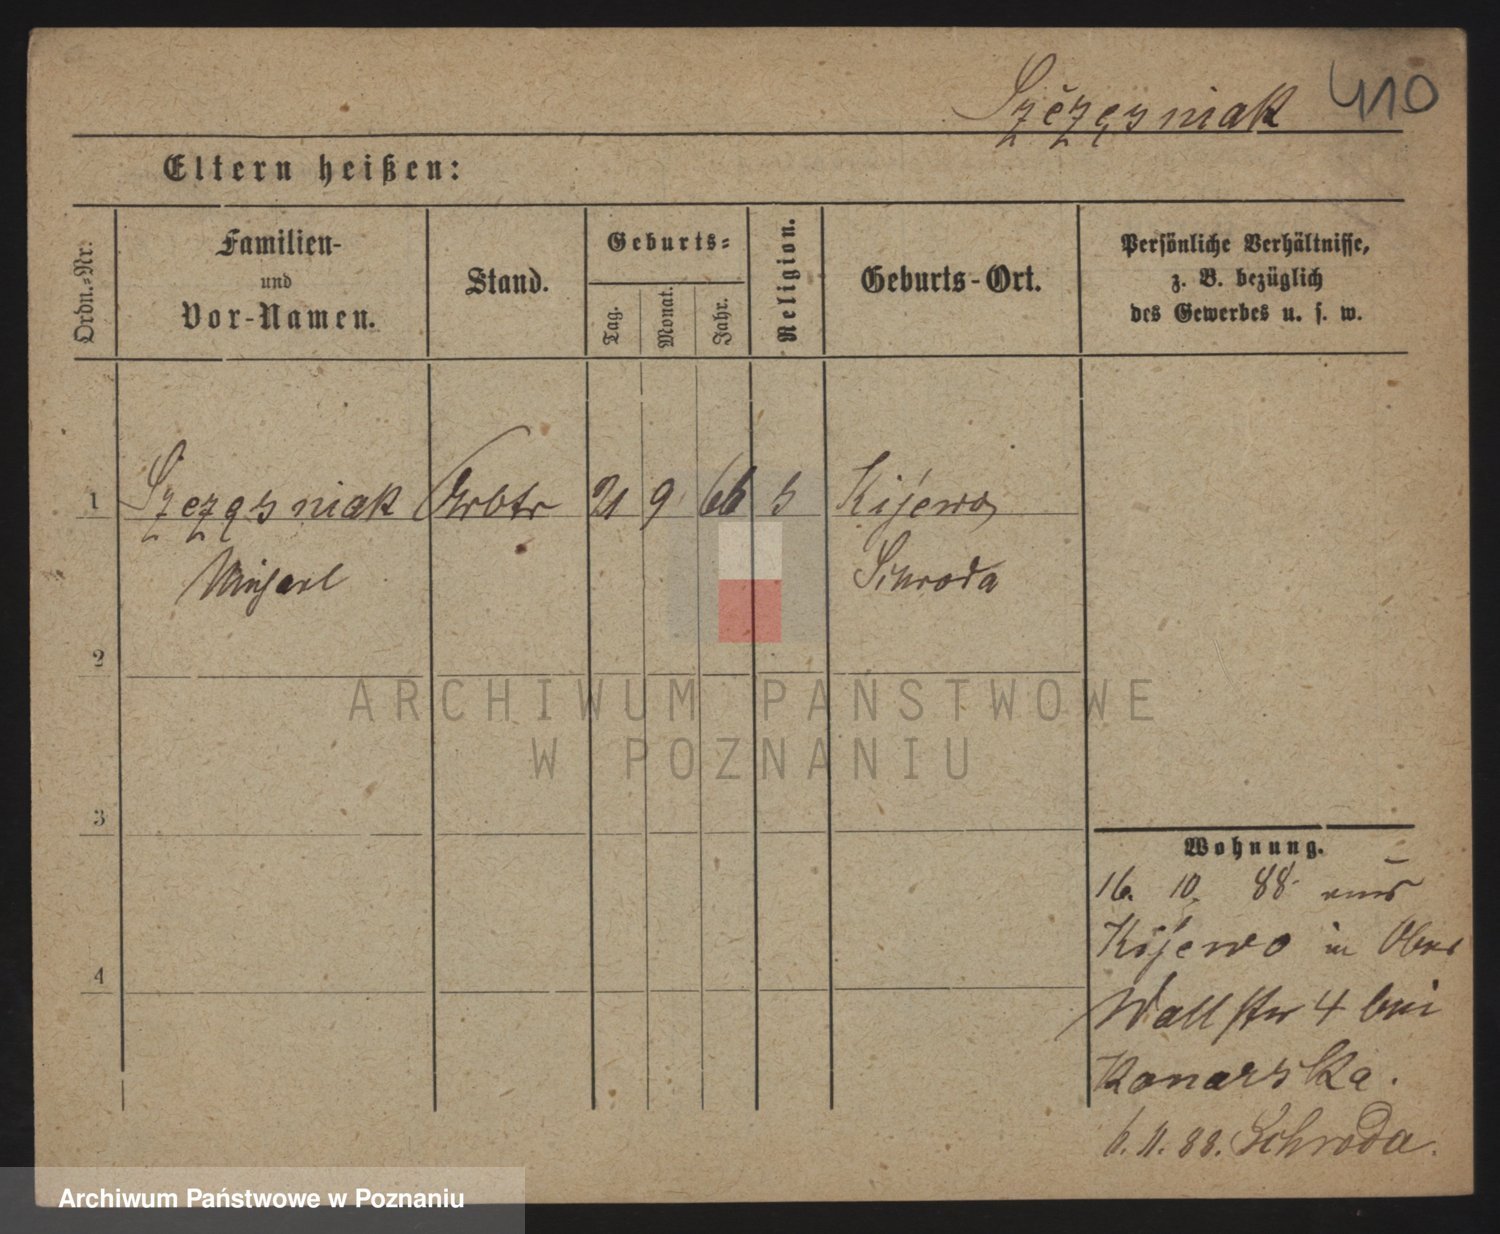 Szczęsniak 410
Eltern heißen:
Ordn.-Nr:
Familien-
und
Vor-Namen.
Stand.
Geburts-
Tag.
Monat.
Jahr.
Religion.
Geburts-Ort.
Persönliche Verhältnisse,
z. B. bezüglich
des Gewerbes u. s. w.
1 Szczęsniak Arbtr 21 9 66 Kijewo
Michael Schroda
2
3
4
ARCHIWUM PAŃSTWOWE
W POZNANIU
Wohnung.
16. 10. 88 aus
Kijewo in Ober
Wallstr 4 bei
Konarska.
6. 11. 88. Schroda.
Archiwum Państwowe w Poznaniu